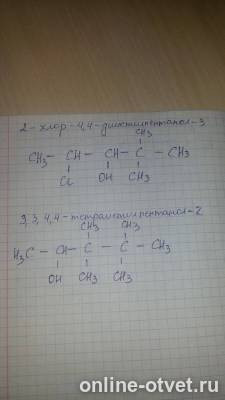 2-хлор-4,4-диметилпентанол-3
CH₃
CH₃ - CH - CH - C - CH₃
Cl OH CH₃
3,3,4,4-тетраметилпентанол-2
CH₃ CH₃
H₃C - CH - C - C - CH₃
OH CH₃ CH₃
online-otvet.ru